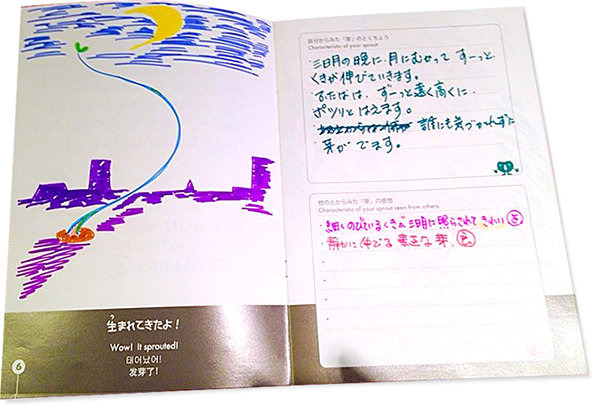 生まれてきたよ！
Wow! It sprouted!
태어났어!
发芽了!
6
自分からみた「芽」のとくちょう
Characteristic of your sprout
三日月の晩に、月にむかって ずーっと
くきが伸びていきます。
ふたばは、ずーっと遠く高くに
ポツリとはえます。
誰にも気づかれずに
芽が でます。
他の人からみた「芽」の感想
Characteristic of your sprout seen from others
・細くのびているくきが三日月に照らされてきれい
・静かに伸びる 素直な芽。